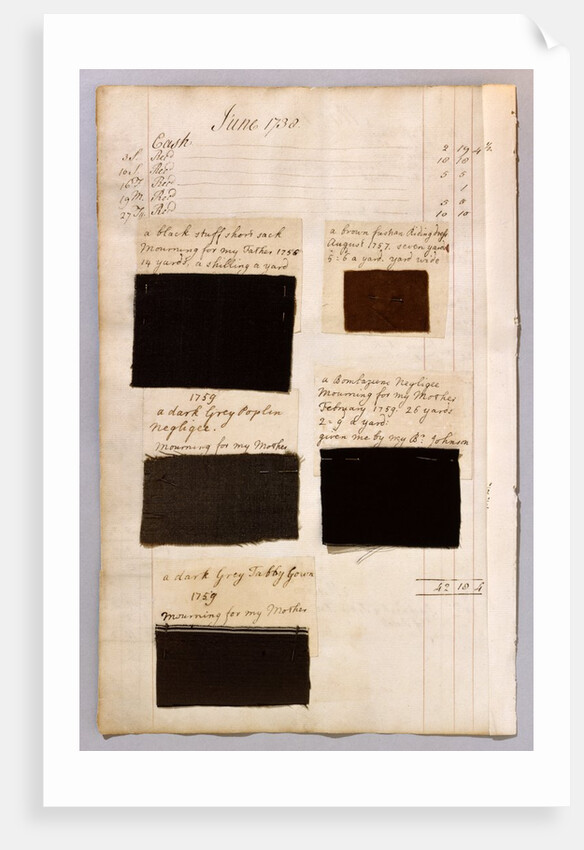 June 1738
Cash 2 19 4 ½
3 S. Recd 10 18
10 S. Recd 5 5
16 F. Recd 1
19 M. Recd 5 0
27 Recd 10 10
a black stuff short sack
Mourning for my Father 1756
14 yards, a shilling a yard
a brown fustian Riding dress
August 1757. seven yards
a yard. yard wide
1759
a dark Grey Poplin
Negligee.
Mourning for my Mother
a Bombazeene Negligee
Mourning for my Mother
February 1759. 26 yards
2=9 a yard.
given me by my Br. Johnson
42 18 4
a dark Grey Tabby Gown
1759
Mourning for my Mother